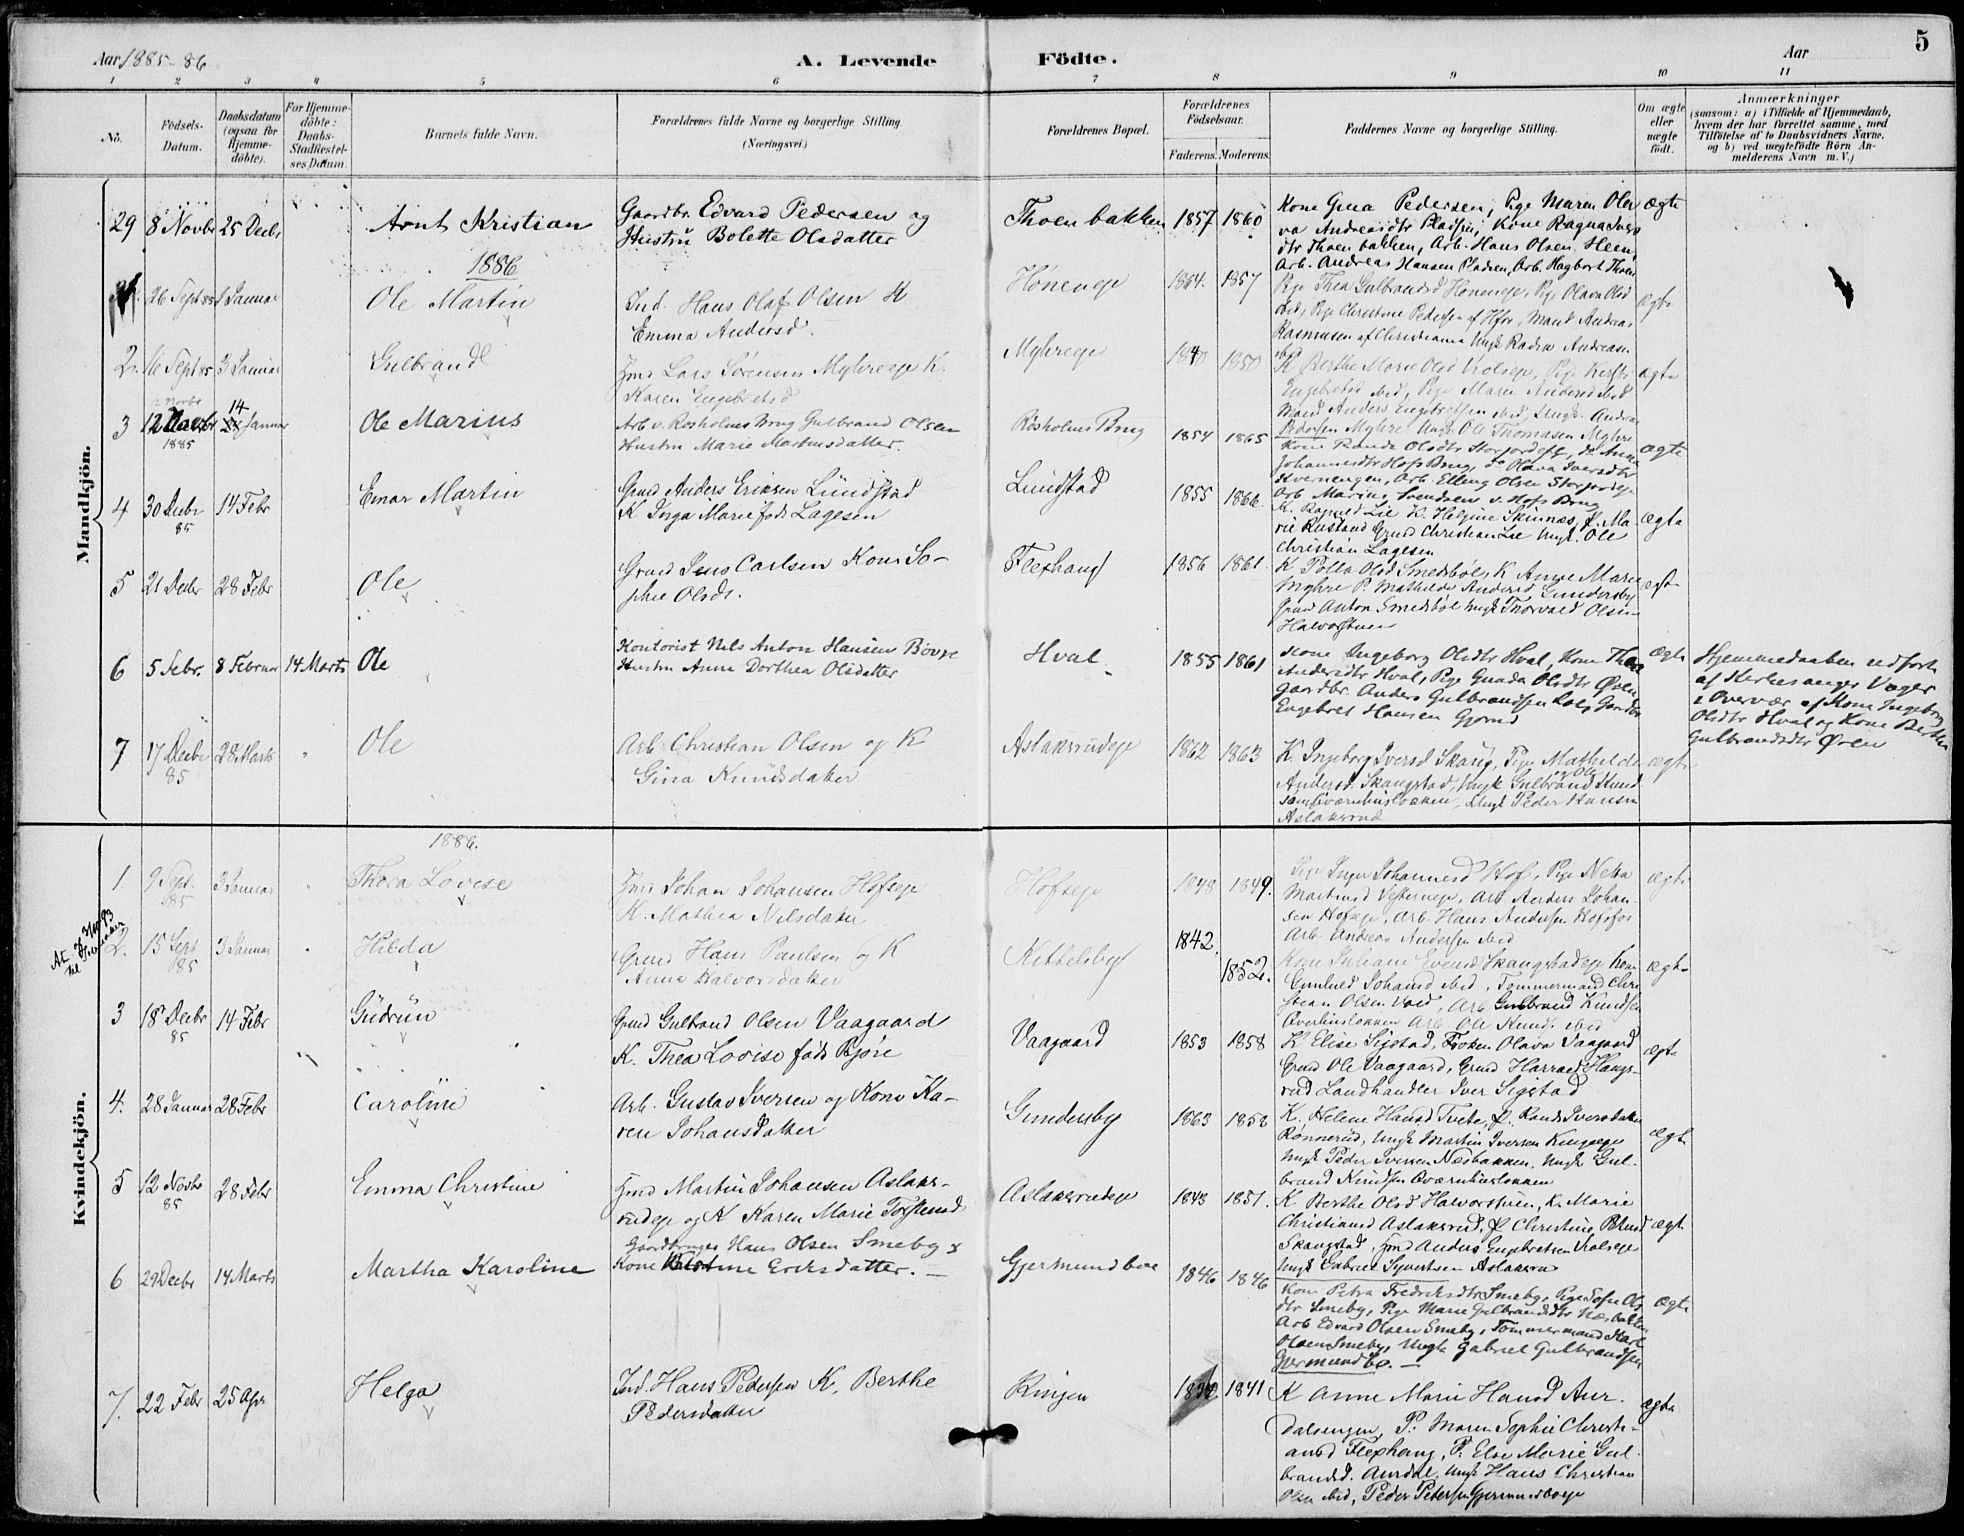 Aar 1885-86
A. Levende Födte.
Aar
5
1 2 3 4 5 6 7 8 9 10 11
No.
Födsels-Datum.
Daabsdatum (ogsaa for Hjemme-döbte).
For Hjemme-döbte: Daabs-Stadfæstel-ses Datum.
Barnets fulde Navn.
Forældrenes fulde Navne og borgerlige Stilling (Næringsvei.)
Forældrenes Bopæl.
Forældrenes Födselsaar.
Faderens. Moderens.
Faddernes Navne og borgerlige Stilling.
Om ægte eller uægte födt.
Anmærkninger
(saasom: a) i Tilfælde af Hjemmedaab, hvem der har forrettet samme, med Tilföielse af to Daabsvidners Navne, og b) ved uægtefödte Börn An-melderens Navn m. V.)
Mandkjön.
29 8 Novbr 25 Decbr Arnt Kristian
Gaardbr. Edvard Pedersen og
Hustru Bolette Olsdatter
Thoenbakken 1857 1860
Kone Gina Pedersen, Pige Maren Oli-
va Andreasdtr Pladsen, Kone Ragna Ivers
dtr Thoenbakken, Arb. Hans Olsen Heen,
Arb. Andreas Hansen Pladsen, Arb. Hagbart Thoen
ægte
1886
26 Sept 85 1 Januar Ole Martin
Ind. Hans Olaf Olsen K
Emma Andersd.
Höneneje 1864. 1857
Pige Thea Gulbrandsd Höneneje, Pige Olava Olsd
ibid, Pige Christine Pedersen af Hfos, Mand Andreas
Rasmussen af Christiania Ungk Andreasen
ægte
2. 16 Sept 85 3 Januar Gulbrand
Jmd Lars Sörensen Myhreeje K.
Karen Engebretsd
Myhreeje 1840 1850
K Berthe Marie Olsd Pige
Engebretsd ibid, Pige Maren Andersd ibid
Mand Anders Engebretsen ibid, Ungk. Andreas
Pedersen Myhre Ungk Ole Thomasen Myhre
ægte
3 12 Novbr 1885 14 Januar Ole Marius
12 Novbr
Arb v. Rosholms Brug Gulbrand Olsen
Hustru Marie Martinsdatter.
Rosholms Brug 1854 1865
Kone Randi Olsdtr Storjordeje, do Anne
Johannesdtr Hofs Brug, do Olava Iversdtr
Kvernengen, Arb. Elling Olsen Storjordeje
Arb Marius Svendsen v. Hofs Brug
ægte
4 30 Decbr 85 14 Febr Einar Martin
Grmd Anders Eriksen Lundstad
K Inga Marie föd Lagesen
Lundstad 1855 1866.
K. Lie K. Helgine Skinnes, P. Ma-
rie Rustand Grmd Christian Lie Ungk. Ole
Christian Lagesen
ægte
5 21 Decbr 28 Febr Ole
Grmd Jens Carlsen Kone So-
phie Olsdr.
Flexhaug 1856 1861.
K Olsd Smedsböl, K Anne Marie
Myhre P. Mathilde Andersd Gundersby
Grmd Anton Smedsböl Ungk Thorvald Olsen
Halvorstuen
ægte
6 5 Febr. 8 Februar 14 Marts Ole
Kontorist Nils Anton Hansen Bövre
Hustru Anne Dorthea Olsdatter
Hval 1855 1861
Kone Ingeborg Olsdtr Hval, Kone Thea
Andersdtr Hval, Pige Gunda Olsdtr Öven
Gaardbr. Anders Gulbrandsen
Engebret Hansen Gjörud
ægte
Hjemmedaaben udfört
af Kirkesanger Vager
i Overvær af Kone Ingeborg
Olsdtr Hval og Kone Berthe
Gulbrandsdtr Öven
7 17 Decbr 85 28 Marts " Ole
Arb Christian Olsen og K
Gina Knudsdatter
Aslaksrudeje 1862 1863
K. Ingeborg Iversd Skaug, Pige Mathilde
Andersd. Skaugstad, Ungk Gulbrand og Ole Knud-
sen Qværnhuslökken, Ungk Peder Hansen
Aslaksrud
ægte
Kvindekjön.
1886.
1 9 Sept. 85 3 Januar " Thora Lovise
Jmd Johan Johansen Hofseje
K. Mathea Nilsdatter
Hofseje 1848 1849.
Pige Inger Johannesd Hof, Pige Neka
Martinsd Vesterneje, Arb Anders Johan-
sen Hofseje, Arb. Hans Andersen Hofsfos
Arb. Andreas Andersen ibid
ægte
2. 15 Sept 85 3 Januar " Hilda
Grmd Hans Paulsen og K
Anna Halvorsdatter
Kittelsby 1842 1852.
Kone Juliane Evensd Skaugstadeje Kone
Gunhild Johansd ibid, Tömmermand Chri-
stian Olsen Vold, Arb Gulbrand Knudsen
Qværnhuslökken Arb Ole Knuds. ibid
ægte
3 18 Decbr 85 14 Febr Gudrun
Grmd Gulbrand Olsen Vaagaard
K. Thea Lovise föd Björe
Vaagaard 1853 1858
K Elise Sigstad, Fröken Olava Vaagaard
Grmd Ole Vaagaard, Grmd Harrald Haugs-
rud Landhandler Iver Sigstad
ægte
4. 28 Januar 28 Febr Caroline
Arb. Gustav Iversen og Kone Ka-
ren Johansdatter
Gundersby 1863 1852
K. Helene Hansd Tvete, P. Randi Iversdatter
Rönnerud, Ungk Martin Iversen
Ungk Peder Iversen Næsbakken, Ungk Gul-
brand Knudsen Qværnhuslökken
ægte
5 12 Novbr 85 28 Febr Emma Christine
Jmd Martin Johansen Aslaks-
rudeje og K Karen Marie Torstensd
Aslaksrudeje 1848 1851.
K Berthe Olsd Halvorstuen, K. Marie
Christiansd Aslaksrud, P Christine
Skaugstad, Jmd Anders Engebretsen
Ungk Gabriel Syvertsen Aslaksrud
ægte
6 29 Decbr 14 Marts Martha Karoline
Gaardbruger Hans Olsen Smeby &
Kone Eriksdatter.
Gjermundboe 1846 1846
Kone Petra Fredriksdtr Smeby, Pige Sofie Ols
dtr Smeby, Pige Marie Gulbrandsdtr Næsbakken
Arb Edvard Olsen Smeby, Tömmermand Karl
Olsen Smeby, Ungk Gabriel Gulbrandsen
Gjermundbo.
ægte
7. 22 Febr 25 Apr Helga
Ind. Hans Pedersen K. Berthe
Pedersdatter
Ringen 1841
K Anne Marie Hansd Aur-
dalsengen, P. Maren Sophie Christi-
ansd Flexhaug, P. Else Marie Gul-
brandsd. Aurdal. Ungk Hans Christian
Olsen ibid, Peder Petersen Gjermundboeje
ægte